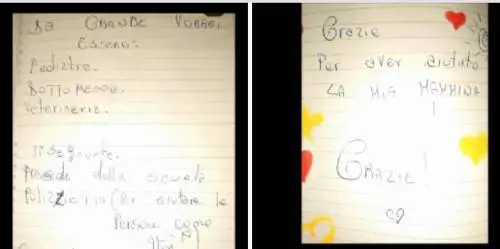 DA GRANDE VORREI
ESSERE:
Pediatra.
DOTTORESSA.
Veterinaria.
Insegnante.
Preside della scuola
Poliziotta (Per aiutare le
Persone come
Grazie
Per aver aiutato
LA MIA MAMMINA
!
GRAZIE!